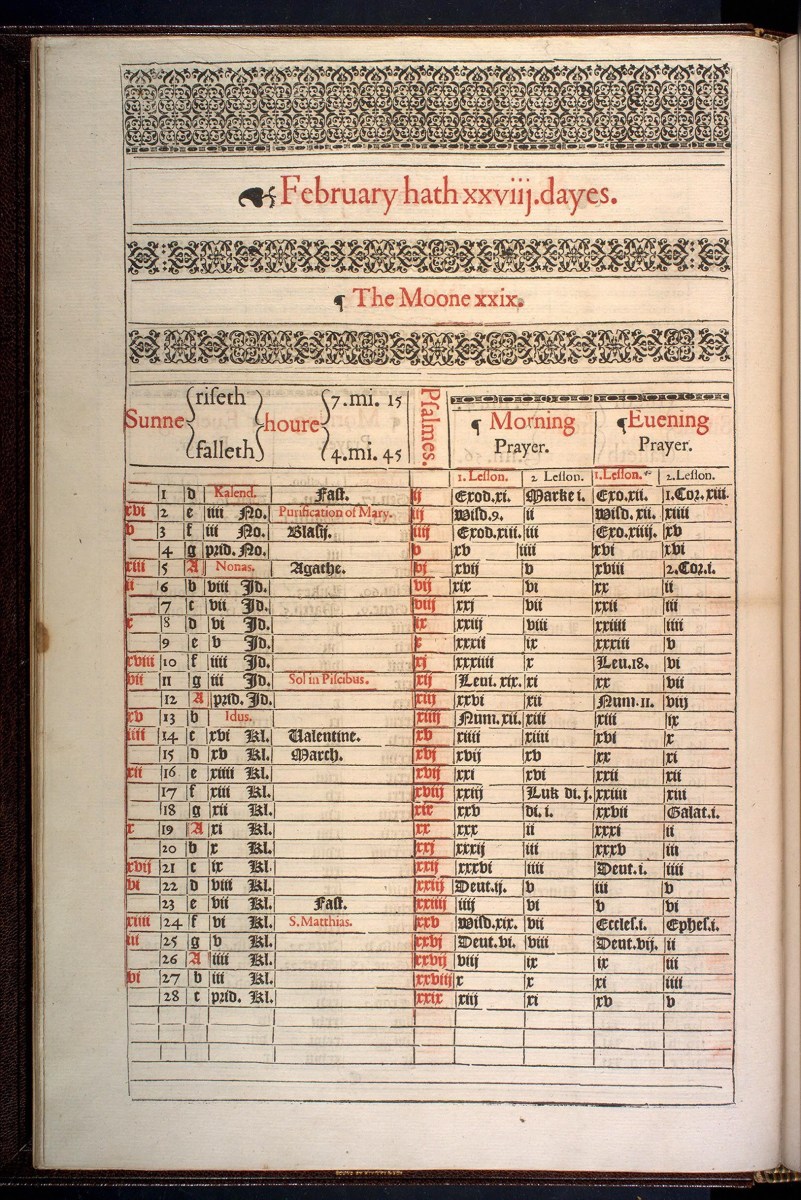 February hath xxviij.dayes.
¶ The Moone xxix.
Sunne riseth falleth houre 7.mi. 15 4.mi. 45 Psalmes. ¶ Morning Prayer. ¶ Euening Prayer.
1.Lesson. 2 Lesson. 1.Lesson. 2.Lesson.
1 d Kalend. Fast. ij Exod.xi. Marke i. Exo.xii. 1.Cor.xiii.
xvi 2 e iiii No. Purification of Mary. iij Wisd.9. ii Wisd.xii. xiiii
v 3 f iii No. Blasij. iiij Exod.xiii. iii Exo.xiiij. xv
4 g prid. No. v xv iiii xvi xvi
xiii 5 A Nonas. Agathe. vj xvij v xviii 2.Cor.i.
ii 6 b viii Id. vij xix vi xx ii
7 c vii Id. viij xxj vii xxii iii
x 8 d vi Id. ix xxiij viii xxiiii iiii
9 e v Id. x xxxii ix xxxiii v
xviii 10 f iiii Id. xj xxxiiii x Leu.18. vi
vii 11 g iii Id. Sol in Piscibus. xij Leui.xix. xi xx vii
12 A prid. Id. xiij xxvi xii Num.11. viij
xv 13 b Idus. xiiij Num.xii. xiii xiii ix
iiii 14 c xvi Kl. Ualentine. xv xiiii xiiii xvi x
15 d xv Kl. March. xvj xvij xv xx xi
xii 16 e xiiii Kl. xvij xxi xvi xxii xii
17 f xiii Kl. xviij xxiij Luk di.j. xxiiii xiii
18 g xii Kl. xix xxv di.i. xxvii Galat.i.
x 19 A xi Kl. xx xxx ii xxxi ii
20 b x Kl. xxj xxxij iii xxxv iii
xvij 21 c ix Kl. xxij xxxvi iiii Deut.i. iiii
vi 22 d viii Kl. xxiij Deut.ij. v iii v
23 e vii Kl. Fast. xxiiij iiij vi v vi
xiiii 24 f vi Kl. S.Matthias. xxv Wisd.xix. vii Eccles.i. Ephes.i.
iii 25 g v Kl. xxvj Deut.vi. viii Deut.vij. ii
26 A iiii Kl. xxvij viij ix ix iii
vi 27 b iii Kl. xxviij x x xi iiii
28 c prid. Kl. xxix xiij xi xv v